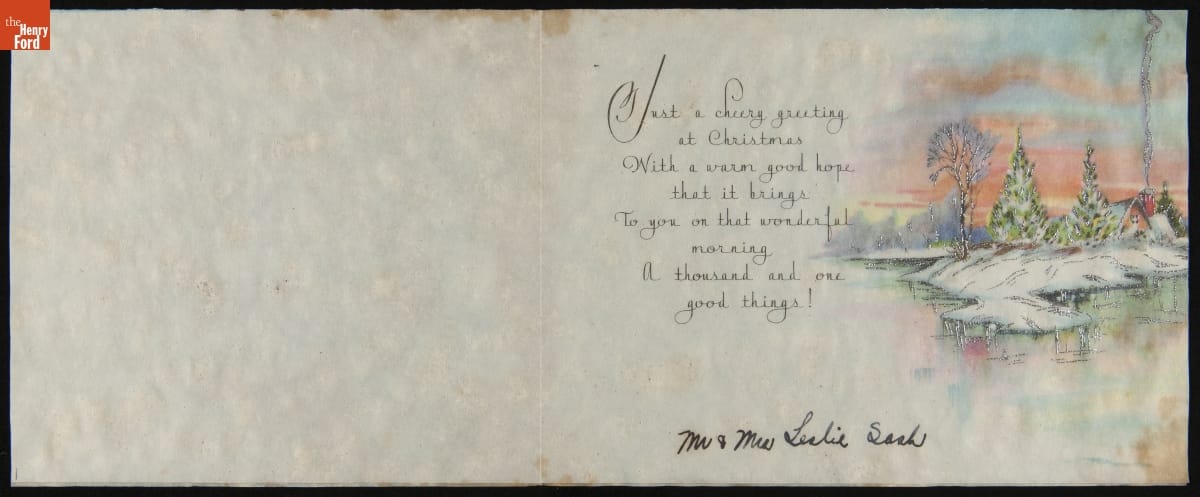 the
Henry
Ford
Just a cheery greeting
at Christmas
With a warm good hope
that it brings
To you on that wonderful
morning
A thousand and one
good things!
Mr & Mrs Leslie Sash